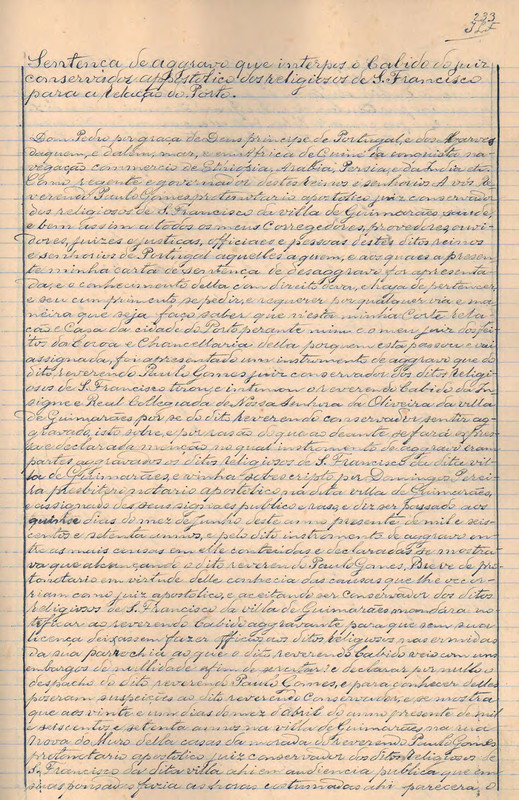 233
Sentença de aggravo que interpos o Cabido do juiz
conservador apostolico dos religiosos de S. Francisco
para a relação do Porto.
Dom Pedro por graça de Deus principe de Portugal, e dos Algarves
daquem, e dalem, mar, e em Africa de Guiné da conquista na-
vegação commercio de Ethiopia, Arabia, Persia, e da India etc.
Como regente e governador destes reinos e senhorios. A vós Re-
verendo Paulo Gomes, protonotario apostolico juiz conservador
dos religiosos de S. Francisco da villa de Guimarães, saude,
e bem assim a todos os meus corregedores, provedores, ouvi-
dores, juizes e justiças, officiaes e pessoas destes ditos reinos
e senhorios de Portugal aquelles a quem, e aos quaes a presen-
te minha carta de sentença de desaggravo for apresenta-
da, e o conhecimento della com direito deva, e haja de pertencer,
e seu cumprimento se pedir, e requerer por qualquer via e ma-
neira que seja faço saber que nesta minha Corte rela-
ção e Casa da cidade do Porto perante mim e o meu juiz dos feitos
da Coroa e Chancellaria della por quem esta passou e vai
assignada, foi apresentado um instrumento de aggravo que do
dito reverendo Paulo Gomes juiz conservador dos ditos Religi-
osos de S. Francisco tirou, e intentou o reverendo Cabido da In-
signe e Real Collegiada de Nossa Senhora da Oliveira da villa
de Guimarães por se do dito Reverendo conservador sentir ag-
gravado, isto sobre, e por rasão do que ao deante se fará expres-
sa e declarada menção no qual instrumento de aggravo eram
partes aggravados os ditos Religiosos de S. Francisco da dita vil-
la de Guimarães, e vinha sobescripto por Domingos Perei-
ra presbitero notario apostolico na dita villa de Guimarães,
e assignado de seus signaes publico e raso, e diz ser passado aos
quinze dias do mez de Junho deste anno presente de mil e seis-
centos e setenta annos, e pelo dito instromento de aggravo en-
tre as mais causas em elle conteudas e declaradas se mostra-
va que alcançando o dito reverendo Paulo Gomes, Breve de pro-
tonotario em virtude delle conhecia das causas que lhe occor-
riam como juiz apostolico, e aceitando ser Conservador dos ditos
Religiosos de S. Francisco da villa de Guimarães mandára no-
tificar ao reverendo Cabido aggravante para que sem sua
licença deixassem fazer officios aos ditos Religiosos nas ermidas
da sua parrochia ao que o dito reverendo Cabido veis com uns
embargos de nullidade afim de se cortar e declarar por nullo o
despacho do dito reverendo Paulo Gomes, e para conhecer delles
poseram suspeições ao dito reverendo Conservador, e se mostra
que aos vinte e um dias do mez d'Abril do anno presente de mil
e seiscentos e setenta annos na villa de Guimarães na rua
nova do Muro della casas da morada do Reverendo Paulo Gomes
protonotario apostolico juiz conservador dos ditos Religiosos de
S. Francisco da dita villa ahi em audiencia publica que em
suas pousadas fazia as horas costumadas ahi parecera, o